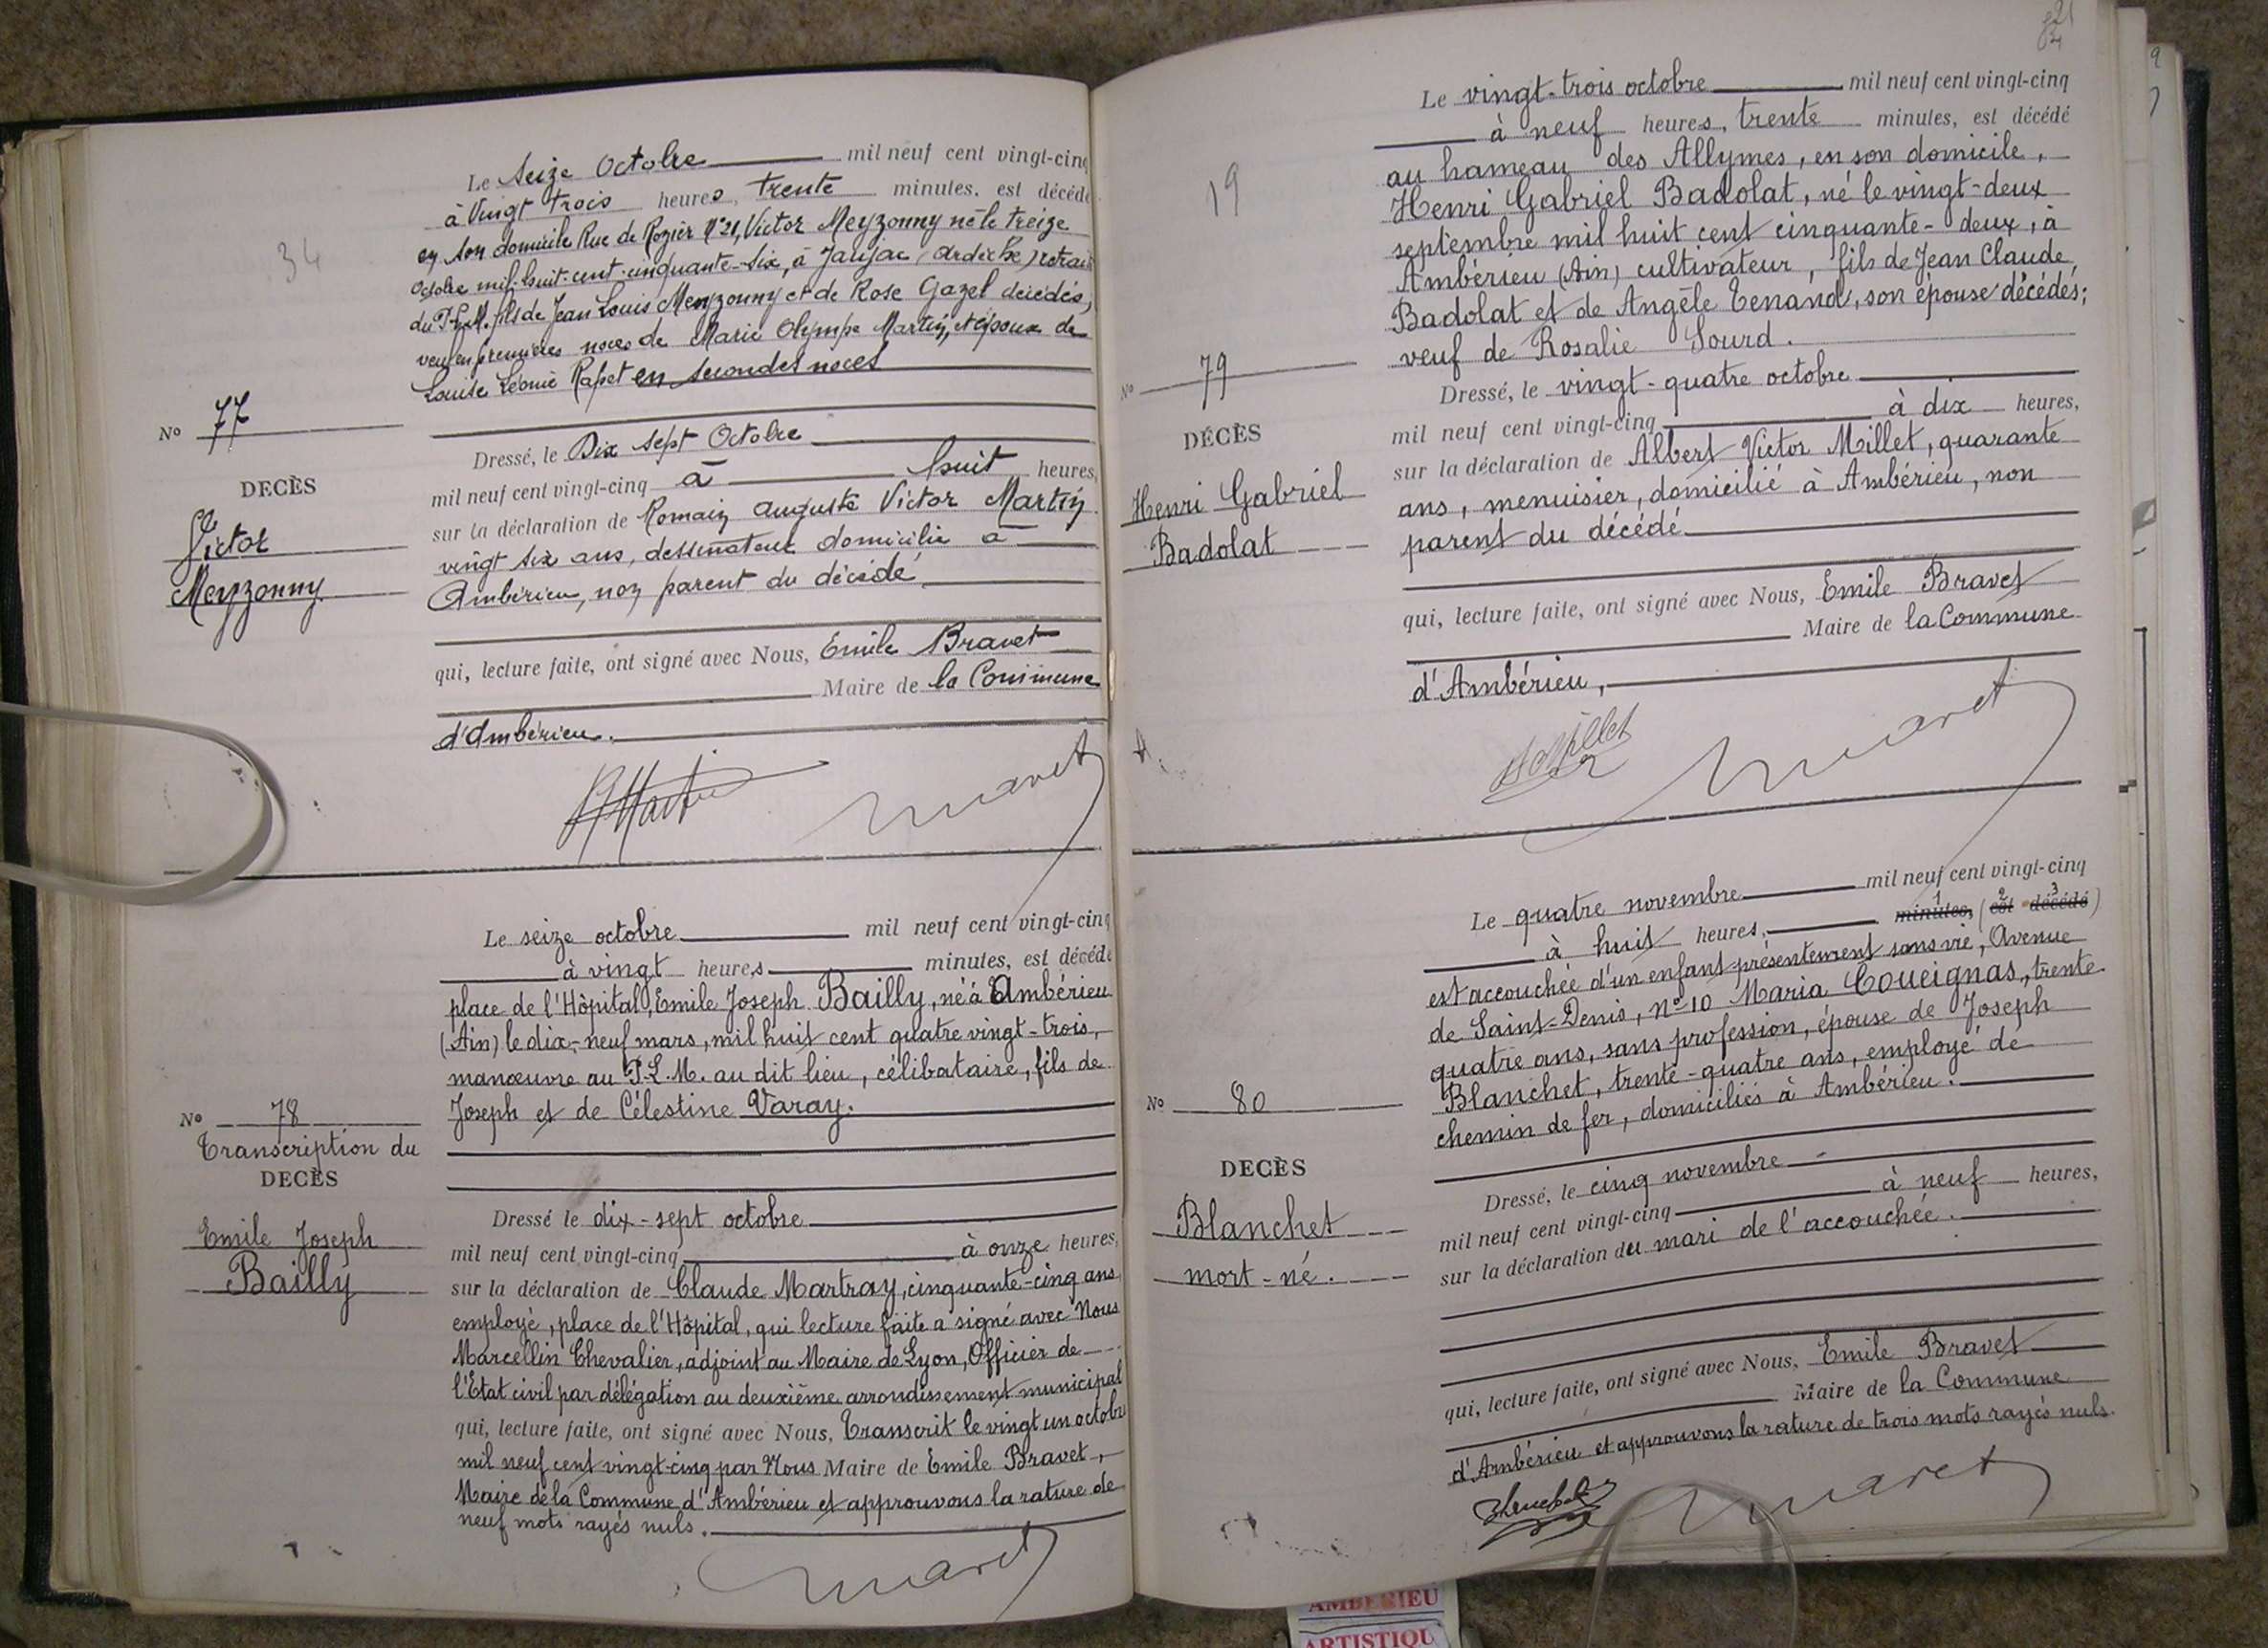 34
Le Seize Octobre mil neuf cent vingt-cinq
à Vingt Trois heures, trente minutes. est décédé
en son domicile Rue de Rozier N°21, Victor Meyzonny né le treize
Octobre mil-huit-cent-cinquante-six, à Jaujac (Ardèche) retraité
du P.L.M. fils de Jean Louis Meyzonny et de Rose Gazel décédés,
veuf en premières noces de Marie Olympe Martin, et époux de
Louise Léonie Rapet en secondes noces
No 77
DECÈS
Victor
Meyzonny
Dressé, le Dix sept Octobre
mil neuf cent vingt-cinq à huit heures,
sur la déclaration de Romain Auguste Victor Martin
vingt six ans, dessinateur domicilié à
Ambérieu, non parent du décédé
qui, lecture faite, ont signé avec Nous, Emile Bravet
Maire de la Commune
d'Ambérieu.
Le seize octobre mil neuf cent vingt-cinq
à vingt heures minutes, est décédé
place de l'Hôpital, Emile Joseph Bailly, né à Ambérieu
(Ain) le dix-neuf mars, mil huit cent quatre vingt-trois,
manœuvre au P.L.M. au dit lieu, célibataire, fils de
Joseph et de Célestine Varay.
No 78
Transcription du
DECÈS
Emile Joseph
Bailly
Dressé le dix-sept octobre
mil neuf cent vingt-cinq à onze heures,
sur la déclaration de Claude Martray, cinquante-cinq ans
employé, place de l'Hôpital, qui lecture faite a signé avec Nous
Marcellin Chevalier, adjoint au Maire de Lyon, Officier de
l'Etat civil par délégation au deuxième arrondissement municipal
qui, lecture faite, ont signé avec Nous, Transcrit le vingt un octobre
mil neuf cent vingt-cinq par Nous Maire de Emile Bravet,
Maire de la Commune d'Ambérieu et approuvons la rature de
neuf mots rayés nuls.
21
19
Le vingt-trois octobre mil neuf cent vingt-cinq
à neuf heures, trente minutes, est décédé
au hameau des Allymes, en son domicile,
Henri Gabriel Badolat, né le vingt-deux
septembre mil huit cent cinquante-deux, à
Ambérieu (Ain) cultivateur, fils de Jean Claude
Badolat et de Angèle Tenand, son épouse décédés;
veuf de Rosalie Sourd.
No 79
DÉCÈS
Henri Gabriel
Badolat
Dressé, le vingt-quatre octobre
mil neuf cent vingt-cinq à dix heures,
sur la déclaration de Albert Victor Millet, quarante
ans, menuisier, domicilié à Ambérieu, non
parent du décédé
qui, lecture faite, ont signé avec Nous, Emile Bravet
Maire de la Commune
d'Ambérieu,
Le quatre novembre mil neuf cent vingt-cinq
à huit heures, minutes, (est décédé)
1 2 3
est accouchée d'un enfant présentement sans vie, Avenue
de Saint-Denis, N° 10 Maria Coueignas, trente
quatre ans, sans profession, épouse de Joseph
Blanchet, trente-quatre ans, employé de
chemin de fer, domiciliés à Ambérieu.
No 80
DECÈS
Blanchet
mort-né.
Dressé, le cinq novembre
mil neuf cent vingt-cinq à neuf heures,
sur la déclaration du mari de l'accouchée.
qui, lecture faite, ont signé avec Nous, Emile Bravet
Maire de la Commune
d'Ambérieu et approuvons la rature de trois mots rayés nuls.
AMBERIEU
ARTISTIQU